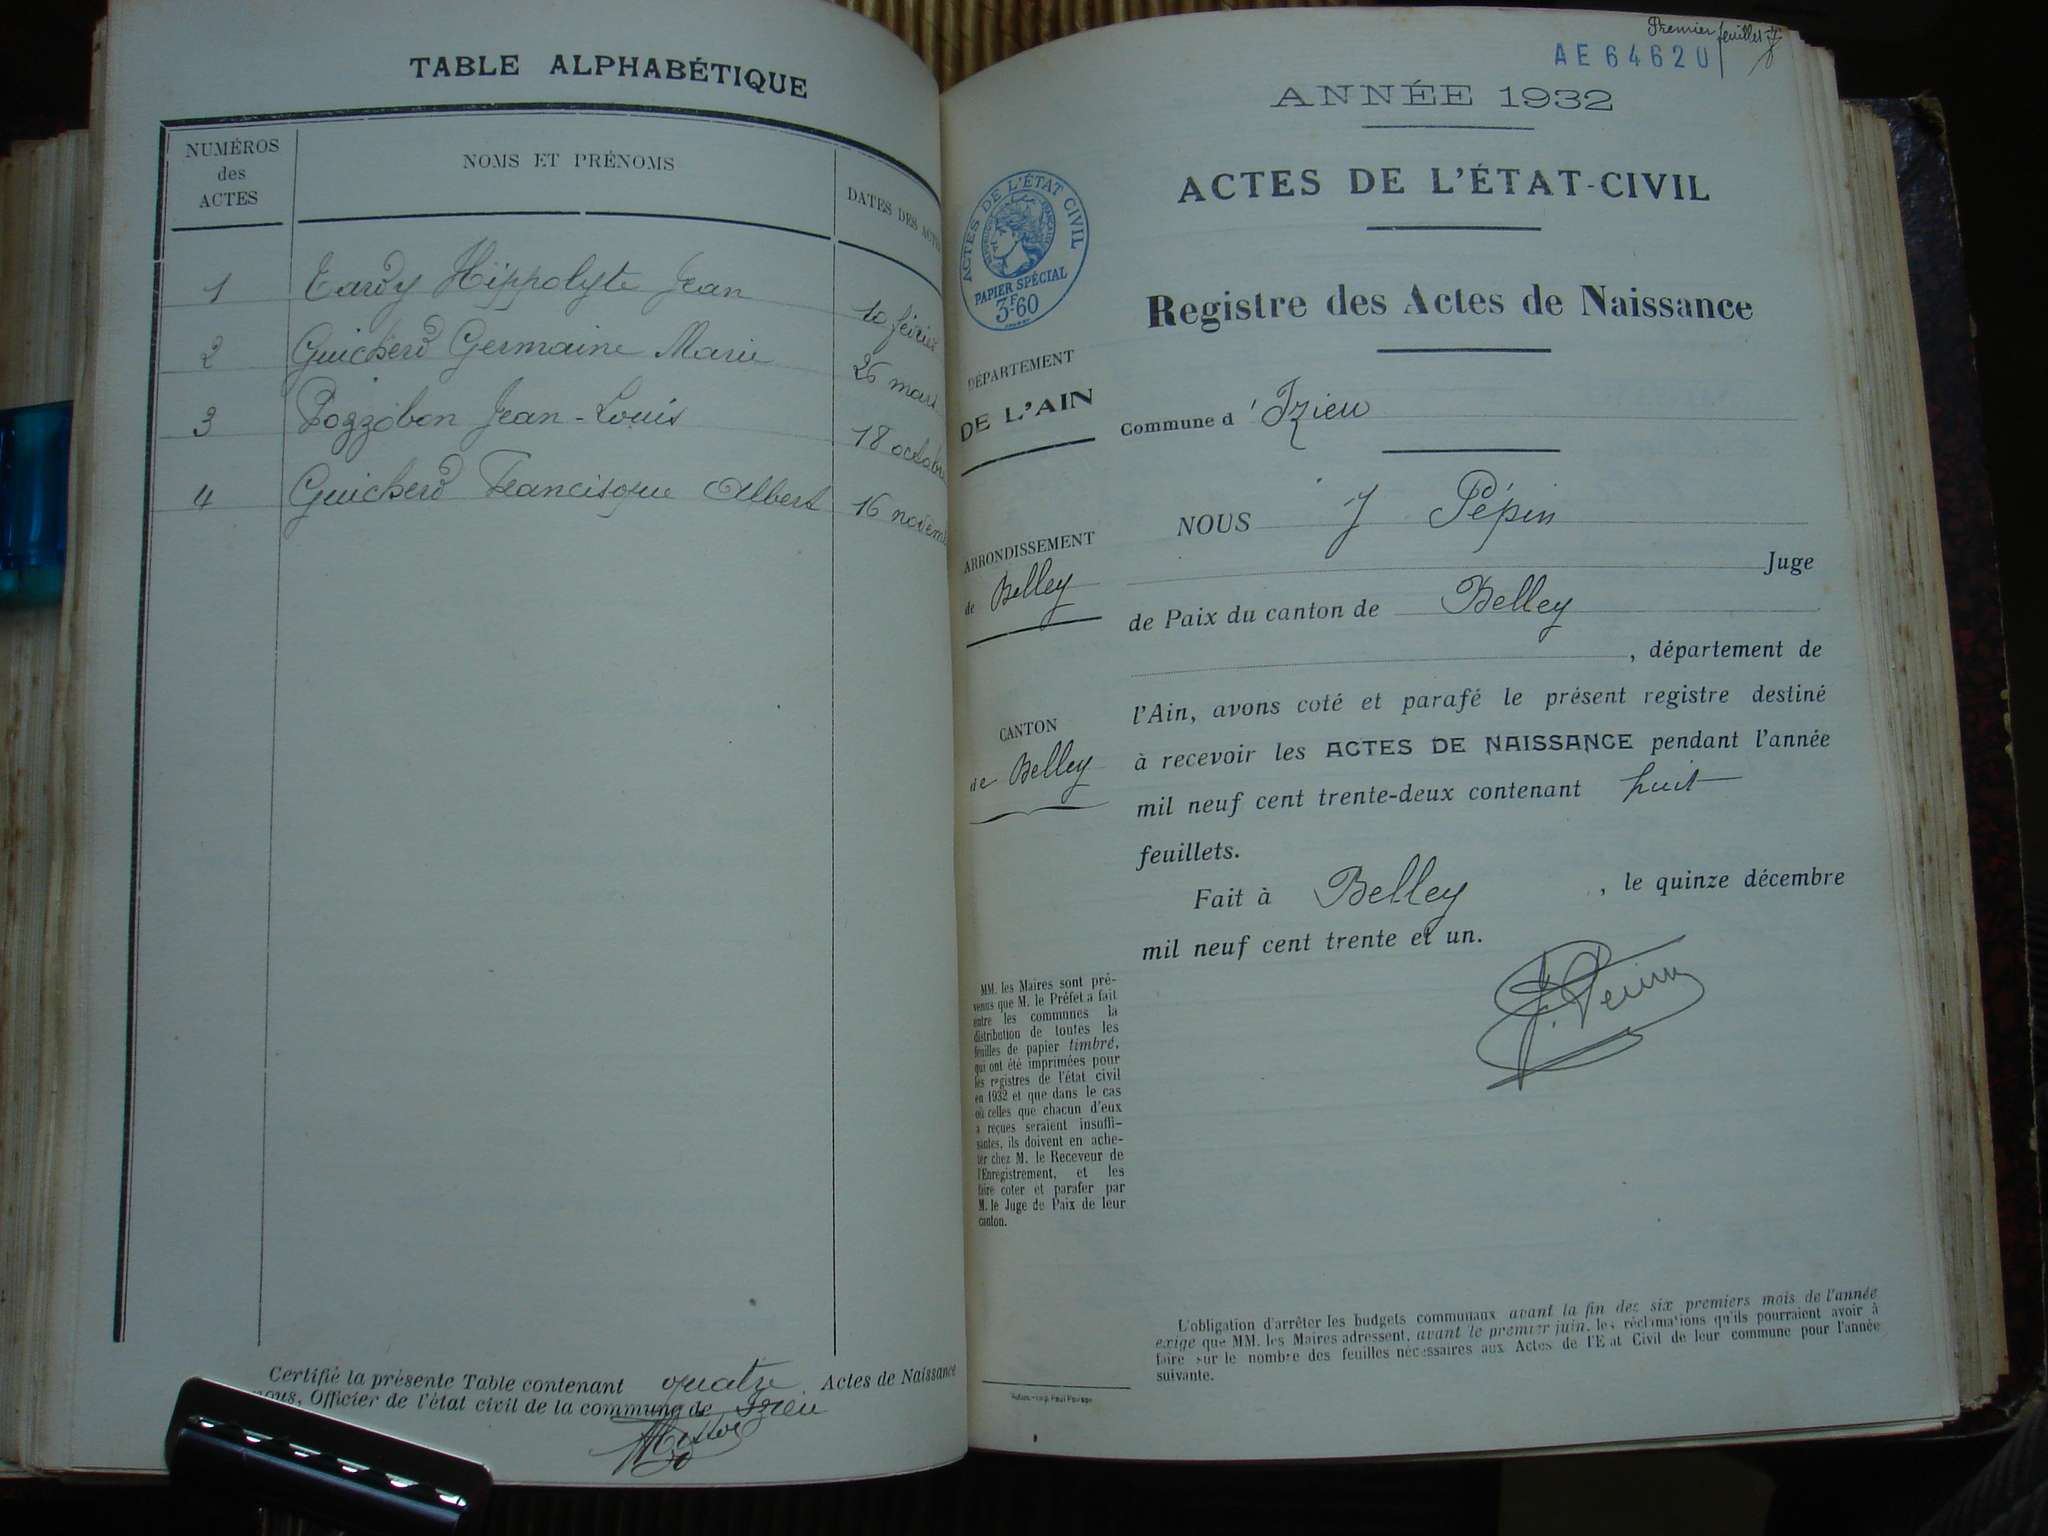 TABLE ALPHABÉTIQUE
NUMÉROS
des
ACTES
NOMS ET PRÉNOMS
DATES DES ACTES
1 Tardy Hippolyte Jean 10 février
2 Guicherd Germaine Marie 26 mars
3 Pozzobon Jean-Louis 18 octobre
4 Guicherd Francisque Albert 16 novem
Certifié la présente Table contenant quatre Actes de Naissance
nous, Officier de l'état civil de la commune de Izieu
Premier feuillet
AE 64620
ANNÉE 1932
ACTES DE L'ÉTAT-CIVIL
Registre des Actes de Naissance
ACTES DE L'ÉTAT CIVIL
RÉPUBLIQUE FRANÇAISE
PAPIER SPÉCIAL
3F60
DÉPARTEMENT
DE L'AIN
ARRONDISSEMENT
de Belley
CANTON
de Belley
MM. les Maires sont pré-
venus que M. le Préfet a fait
entre les communes la
distribution de toutes les
feuilles de papier timbré,
qui ont été imprimées pour
les registres de l'état civil
en 1932 et que dans le cas
où celles que chacun d'eux
a reçues seraient insuffi-
santes, ils doivent en ache-
ter chez M. le Receveur de
l'Enregistrement, et les
faire coter et parafer par
M. le Juge de Paix de leur
canton.
Commune d'Izieu
NOUS J Pépin
Juge
de Paix du canton de Belley
, département de
l'Ain, avons coté et parafé le présent registre destiné
à recevoir les ACTES DE NAISSANCE pendant l'année
mil neuf cent trente-deux contenant huit
feuillets.
Fait à Belley, le quinze décembre
mil neuf cent trente et un.
J. Pépin
L'obligation d'arrêter les budgets communaux avant la fin des six premiers mois de l'année
exige que MM. les Maires adressent, avant le premier juin, les réclamations qu'ils pourraient avoir à
faire sur le nombre des feuilles nécessaires aux Actes de l'Etat Civil de leur commune pour l'année
suivante.